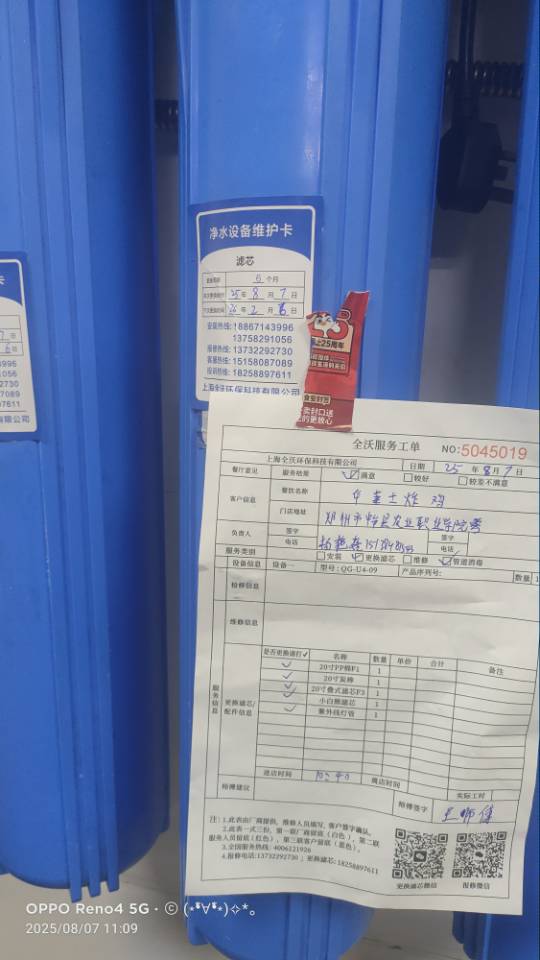 净水设备维护卡
滤芯
6个月
25年8月7日
26年2月6日
安装热线:18867143996
13758291056
报修热线:13732292730
客服热线:15158087089
投诉热线:18258897611
上海全沃环保科技有限公司
7日
6日
3996
1056
2730
7089
7611
有限公司
25周年
食安封签
卖封口送
的更放心
全沃服务工单 NO:5045019
上海全沃环保科技有限公司 日期 25年8月7日
餐厅意见 服务结果 ✓满意 □较好 □较差不满意
客户信息 餐饮名称 华莱士炸鸡
门店地址 郑州市中牟县农业职业学院
负责人 签字 签字
电话 电话
服务类别 □安装 ✓更换滤芯 □维修 ✓管道消毒
设备信息 设备一 型号:QG-U4-09 产品序列号: 数量 1
检修信息
维修信息
服务信息
更换滤芯/配件信息
是否更换请打✓ 名称 数量 单价 合计 备注
✓ 20寸PP棉F1 1
✓ 20寸炭棒 1
✓ 20寸叠式滤芯F3 1
✓ 小白鲸滤芯 1
✓ 紫外线灯管 1
进店时间 10:40 离店时间
检修建议 实际工时
检修签字
注:1.此表由厂商提供,维修人员填写,客户签字确认。
2.此表一式三份,第一联厂商留底(白色),第二联
服务人员留底(红色),第三联客户留底(蓝色)。
3.全国服务热线:4006121926
4.报修电话:13732292730;更换滤芯:18258897611
更换滤芯微信 报修微信
OPPO Reno4 5G · ©
2025/08/07 11:09